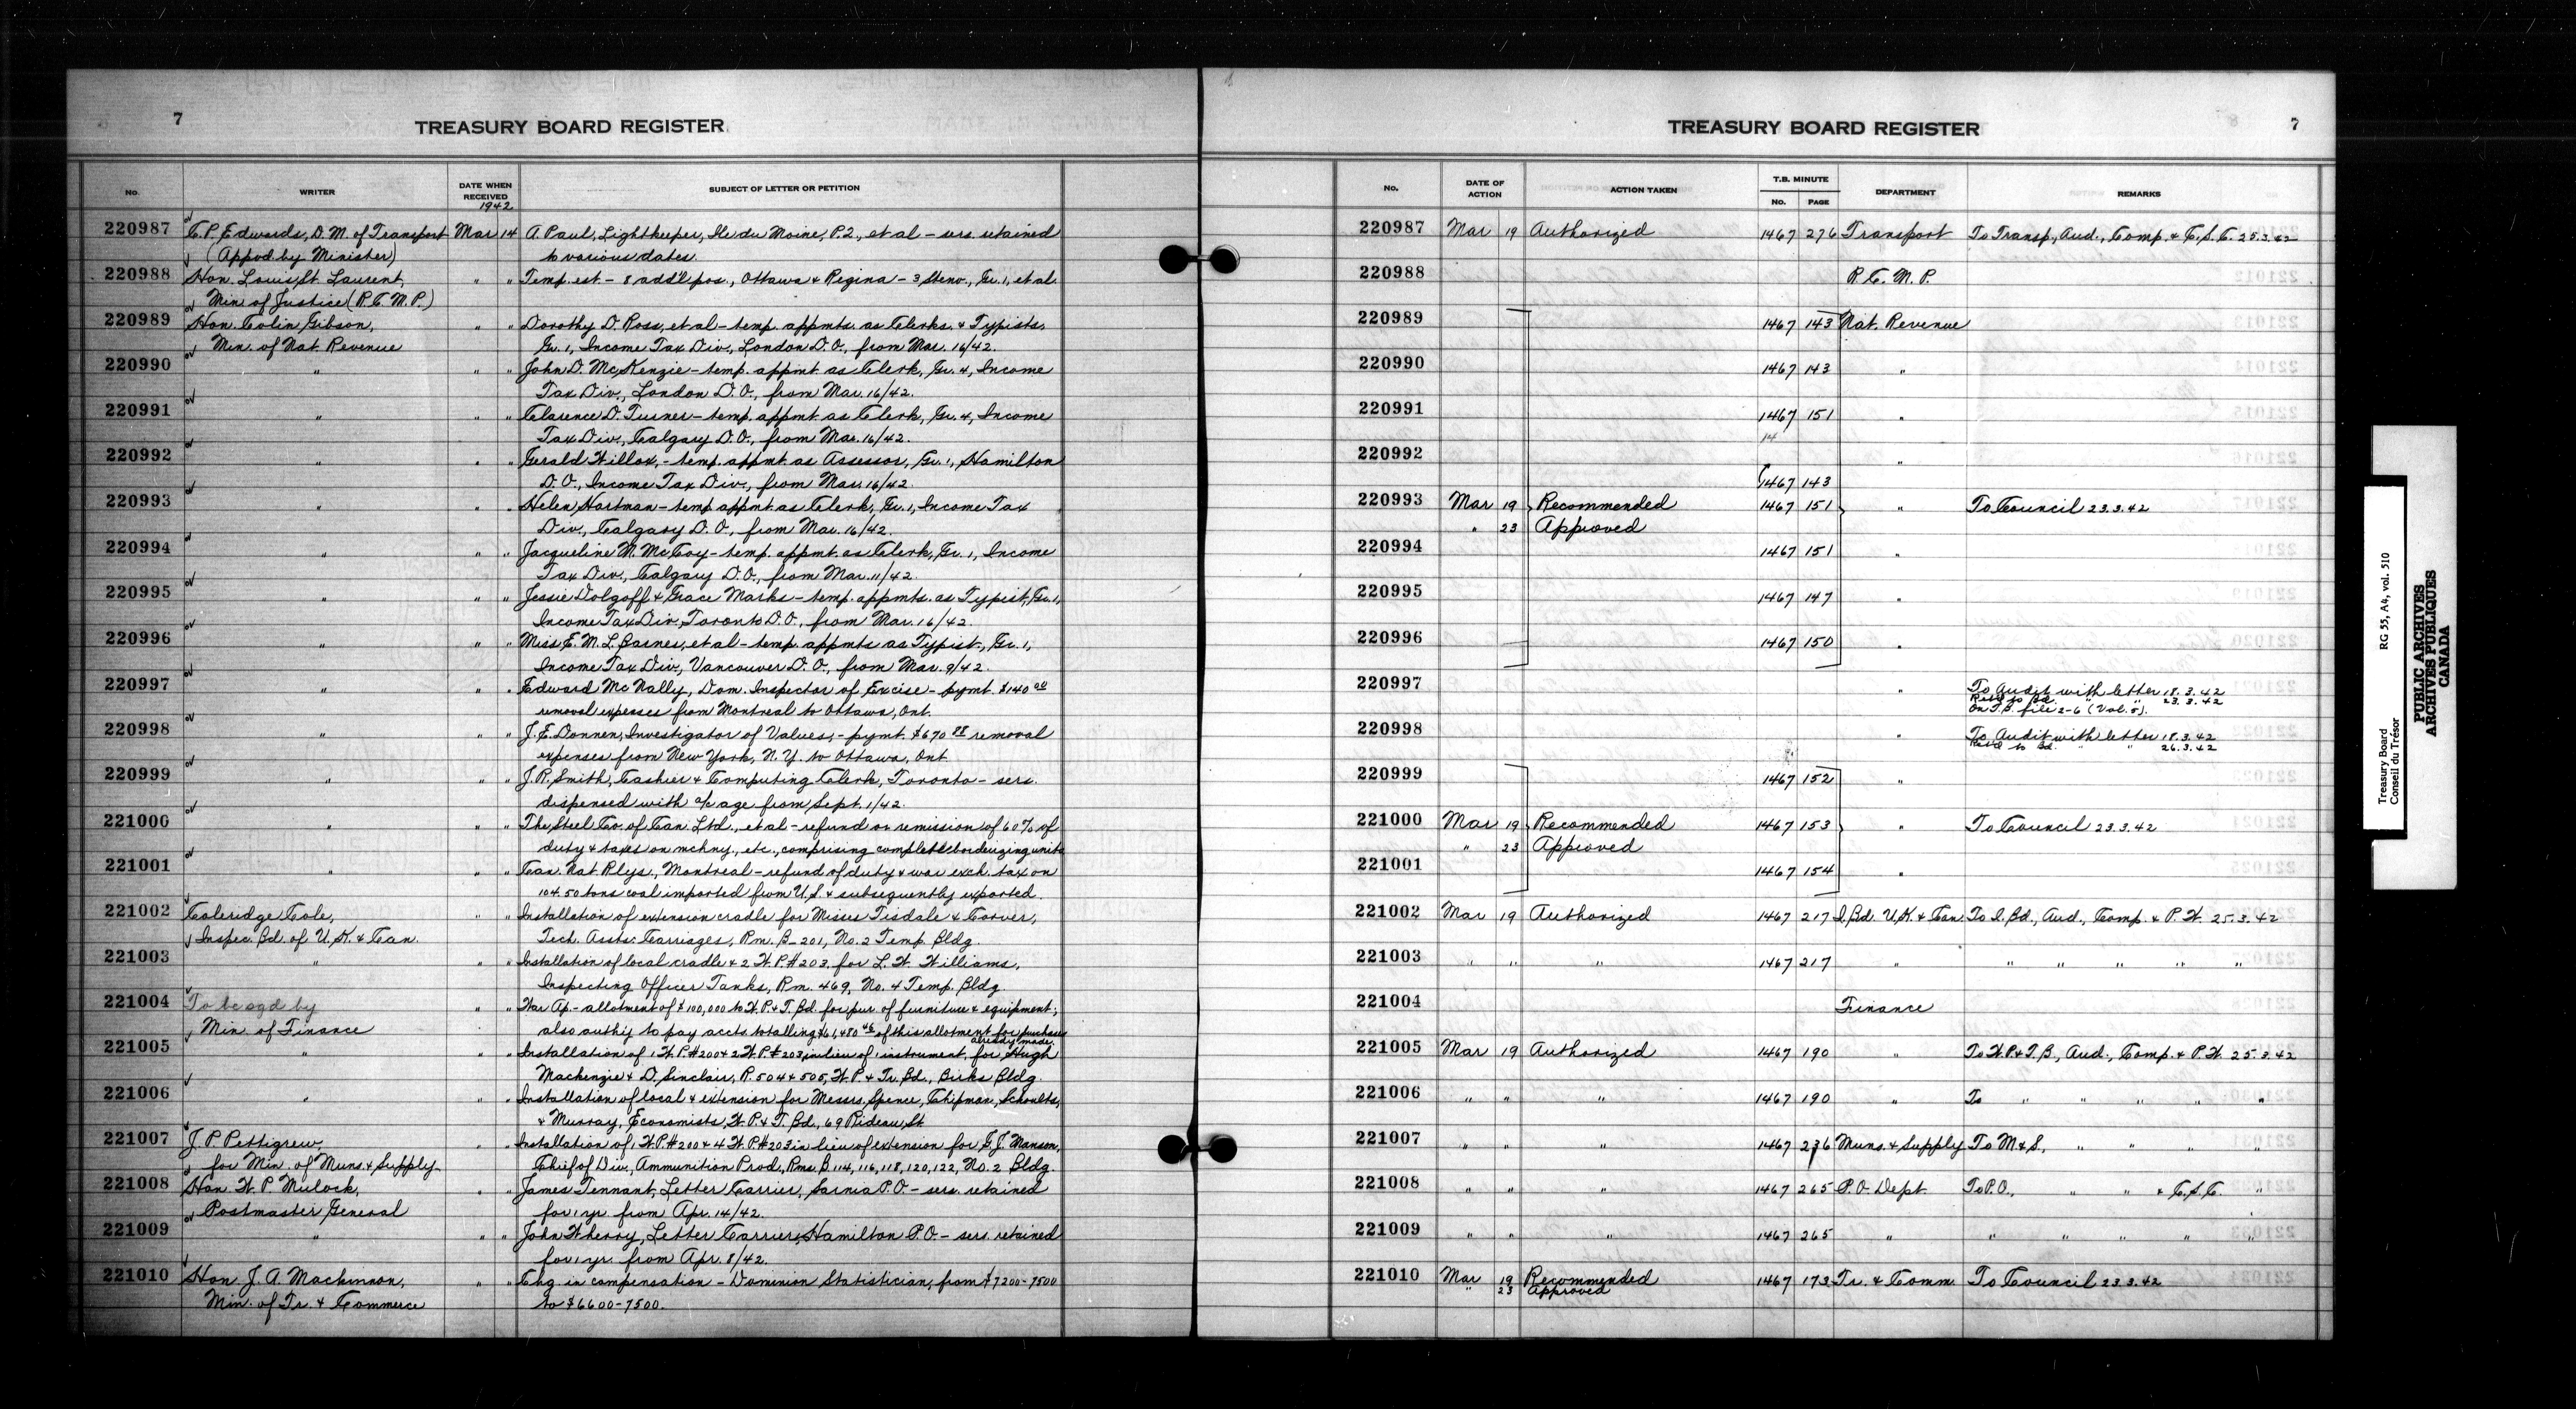 7
TREASURY BOARD REGISTER
No. WRITER DATE WHEN RECEIVED SUBJECT OF LETTER OR PETITION
1942
220987 C.P. Edwards, D.M. of Transport Mar 14 A. Paul, Lightkeeper, Ile du Moine, P.Q., et al – sers. retained
(Appvd. by Minister) to various dates.
220988 Hon. Louis St. Laurent, " " Temp. est. – 8 add'l pos., Ottawa & Regina – 3 Steno., Gr. 1, et al.
Min. of Justice (R.C.M.P.)
220989 Hon. Colin Gibson, " " Dorothy D. Ross, et al – temp. appmts. as Clerks & Typists,
Min. of Nat. Revenue Gr. 1, Income Tax Div., London D.O., from Mar. 16/42.
220990 " " " John D. McKenzie – temp. appmt. as Clerk, Gr. 4, Income
Tax Div., London D.O., from Mar. 16/42.
220991 " " " Clarence D. Turner – temp. appmt as Clerk, Gr. 4, Income
Tax Div., Calgary D.O., from Mar. 16/42.
220992 " " " Gerald Willox, – temp. appmt. as Assessor, Gr. 1, Hamilton
D.O., Income Tax Div., from Mar. 16/42.
220993 " " " Helen Hartman – temp appmt. as Clerk, Gr. 1, Income Tax
Div., Calgary D.O., from Mar. 16/42.
220994 " " " Jacqueline M. McCoy – temp. appmt. as Clerk, Gr. 1, Income
Tax Div., Calgary D.O., from Mar. 11/42.
220995 " " " Jessie Dolgoff & Grace Marks – temp. appmts. as Typist, Gr. 1,
Income Tax Div., Toronto D.O., from Mar. 16/42.
220996 " " " Miss E.M.L. Barnes, et al – temp. appmts as Typist, Gr. 1,
Income Tax Div., Vancouver D.O., from Mar. 9/42.
220997 " " " Edward McNally, Dom. Inspector of Excise – pymt. $140
removal expenses from Montreal to Ottawa, Ont.
220998 " " " J.E. Donnen, Investigator of Values, – pymt. $670 88 removal
expenses from New York, N.Y. to Ottawa, Ont
220999 " " " J.R. Smith, Cashier & Computing Clerk, Toronto – sers.
dispensed with a/c age from Sept. 1/42.
221000 " " " The Steel Co. of Can. Ltd., et al – refund or remission of 60% of
duty & taxes on mchny., etc., comprising complete bonderizing units
221001 " " " Can. Nat. Rlys., Montreal – refund of duty & war exch. tax on
104.50 tons coal imported from U.S. & subsequently exported.
221002 Coleridge Cole, " " Installation of extension cradle for Misses Tisdale & Carver,
Inspec. Bd. of U.K. & Can. Tech. Assts. Carriages, Rm. B-201, No. 2 Temp. Bldg.
221003 " " " Installation of local cradle & 2 W.P.#203 for L.W. Williams,
Inspecting Officer Tanks, Rm. 469, No. 4 Temp. Bldg.
221004 To be sgd by " " War Ap. – allotment of $100,000 to W.P.& T. Bd. for pur. of furniture & equipment;
Min. of Finance also auth'y to pay accts. totalling $61,480 46 of this allotment for purchases
already made.
221005 " " " Installation of 1 W.P.#200 & 2 W.P.#203 in lieu of 1 instrument, for Hugh
Mackenzie & D. Sinclair, R. 504 & 505, W.P. & Tr. Bd., Birks Bldg.
221006 " " " Installation of local & extension for Messrs. Spence, Chipman, Schoults,
& Murray, Economists, W.P.& T. Bd., 69 Rideau St
221007 J.P. Pettigrew, " " Installation of 1 W.P.#200 & 4 W.P.#203 in lieu of extension for G.J. Manson,
for Min. of Muns. & Supply Chief of Div., Ammunition Prod., Rms. B. 114, 116, 118, 120, 122, No. 2 Bldg.
221008 Hon. W.P. Mulock, " " James Tennant, Letter Carrier, Sarnia P.O. – sers. retained
Postmaster General for 1 yr. from Apr. 14/42.
221009 " " " John Wherry, Letter Carrier, Hamilton P.O. – sers. retained
for 1 yr. from Apr. 8/42.
221010 Hon. J.A. Mackinnon, " " Chg. in compensation – Dominion Statistician, from $7200-7500
Min. of Tr. & Commerce to $6600-7500.
TREASURY BOARD REGISTER
7
No. DATE OF ACTION ACTION TAKEN T.B. MINUTE No. PAGE DEPARTMENT REMARKS
220987 Mar 19 Authorized 1467 276 Transport To Transp., Aud., Comp. & C.S.C. 25.3.42
220988 R.C.M.P.
220989 1467 143 Nat. Revenue
220990 1467 143 "
220991 1467 151 "
14
220992 "
1467 143
220993 Mar 19 Recommended 1467 151 " To Council 23.3.42
" 23 Approved
220994 1467 151 "
220995 1467 147 "
220996 1467 150 "
220997 " To Audit with letter 18.3.42
Ret'd to Bd. " " 23.3.42
On T.B. file 2-6 (Vol. 5).
220998 " To Audit with letter 18.3.42
Ret'd to Bd. " " 26.3.42
220999 1467 152 "
221000 Mar 19 Recommended 1467 153 " To Council 23.3.42
" 23 Approved
221001 1467 154 "
221002 Mar 19 Authorized 1467 217 I. Bd. U.K. & Can. To I. Bd., Aud., Comp. & P.W. 25.3.42
221003 " " " 1467 217 " " " " " "
221004 Finance
221005 Mar 19 Authorized 1467 190 " To W.P.& T.B., Aud., Comp. & P.W. 25.3.42
221006 " " " 1467 190 " To " " " " "
221007 " " " 1467 236 Muns. & Supply To M & S., " " " "
221008 " " " 1467 265 P.O. Dept. To P.O., " " & C.S.C. "
221009 " " " 1467 265 " " " " " "
221010 Mar 19 Recommended 1467 173 Tr. & Comm. To Council 23.3.42
" 23 Approved
Treasury Board RG 55, A4, vol. 510
Conseil du Trésor
PUBLIC ARCHIVES
ARCHIVES PUBLIQUES
CANADA